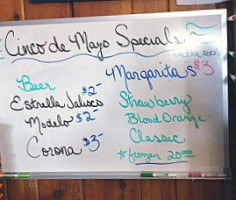 Cinco de Mayo Specials
Beer $2-
Estrella Jalisco
Modelo $2-
Corona $3-
Margaritas $3
Strawberry
Blood Orange
Classic
*frozen 20oz